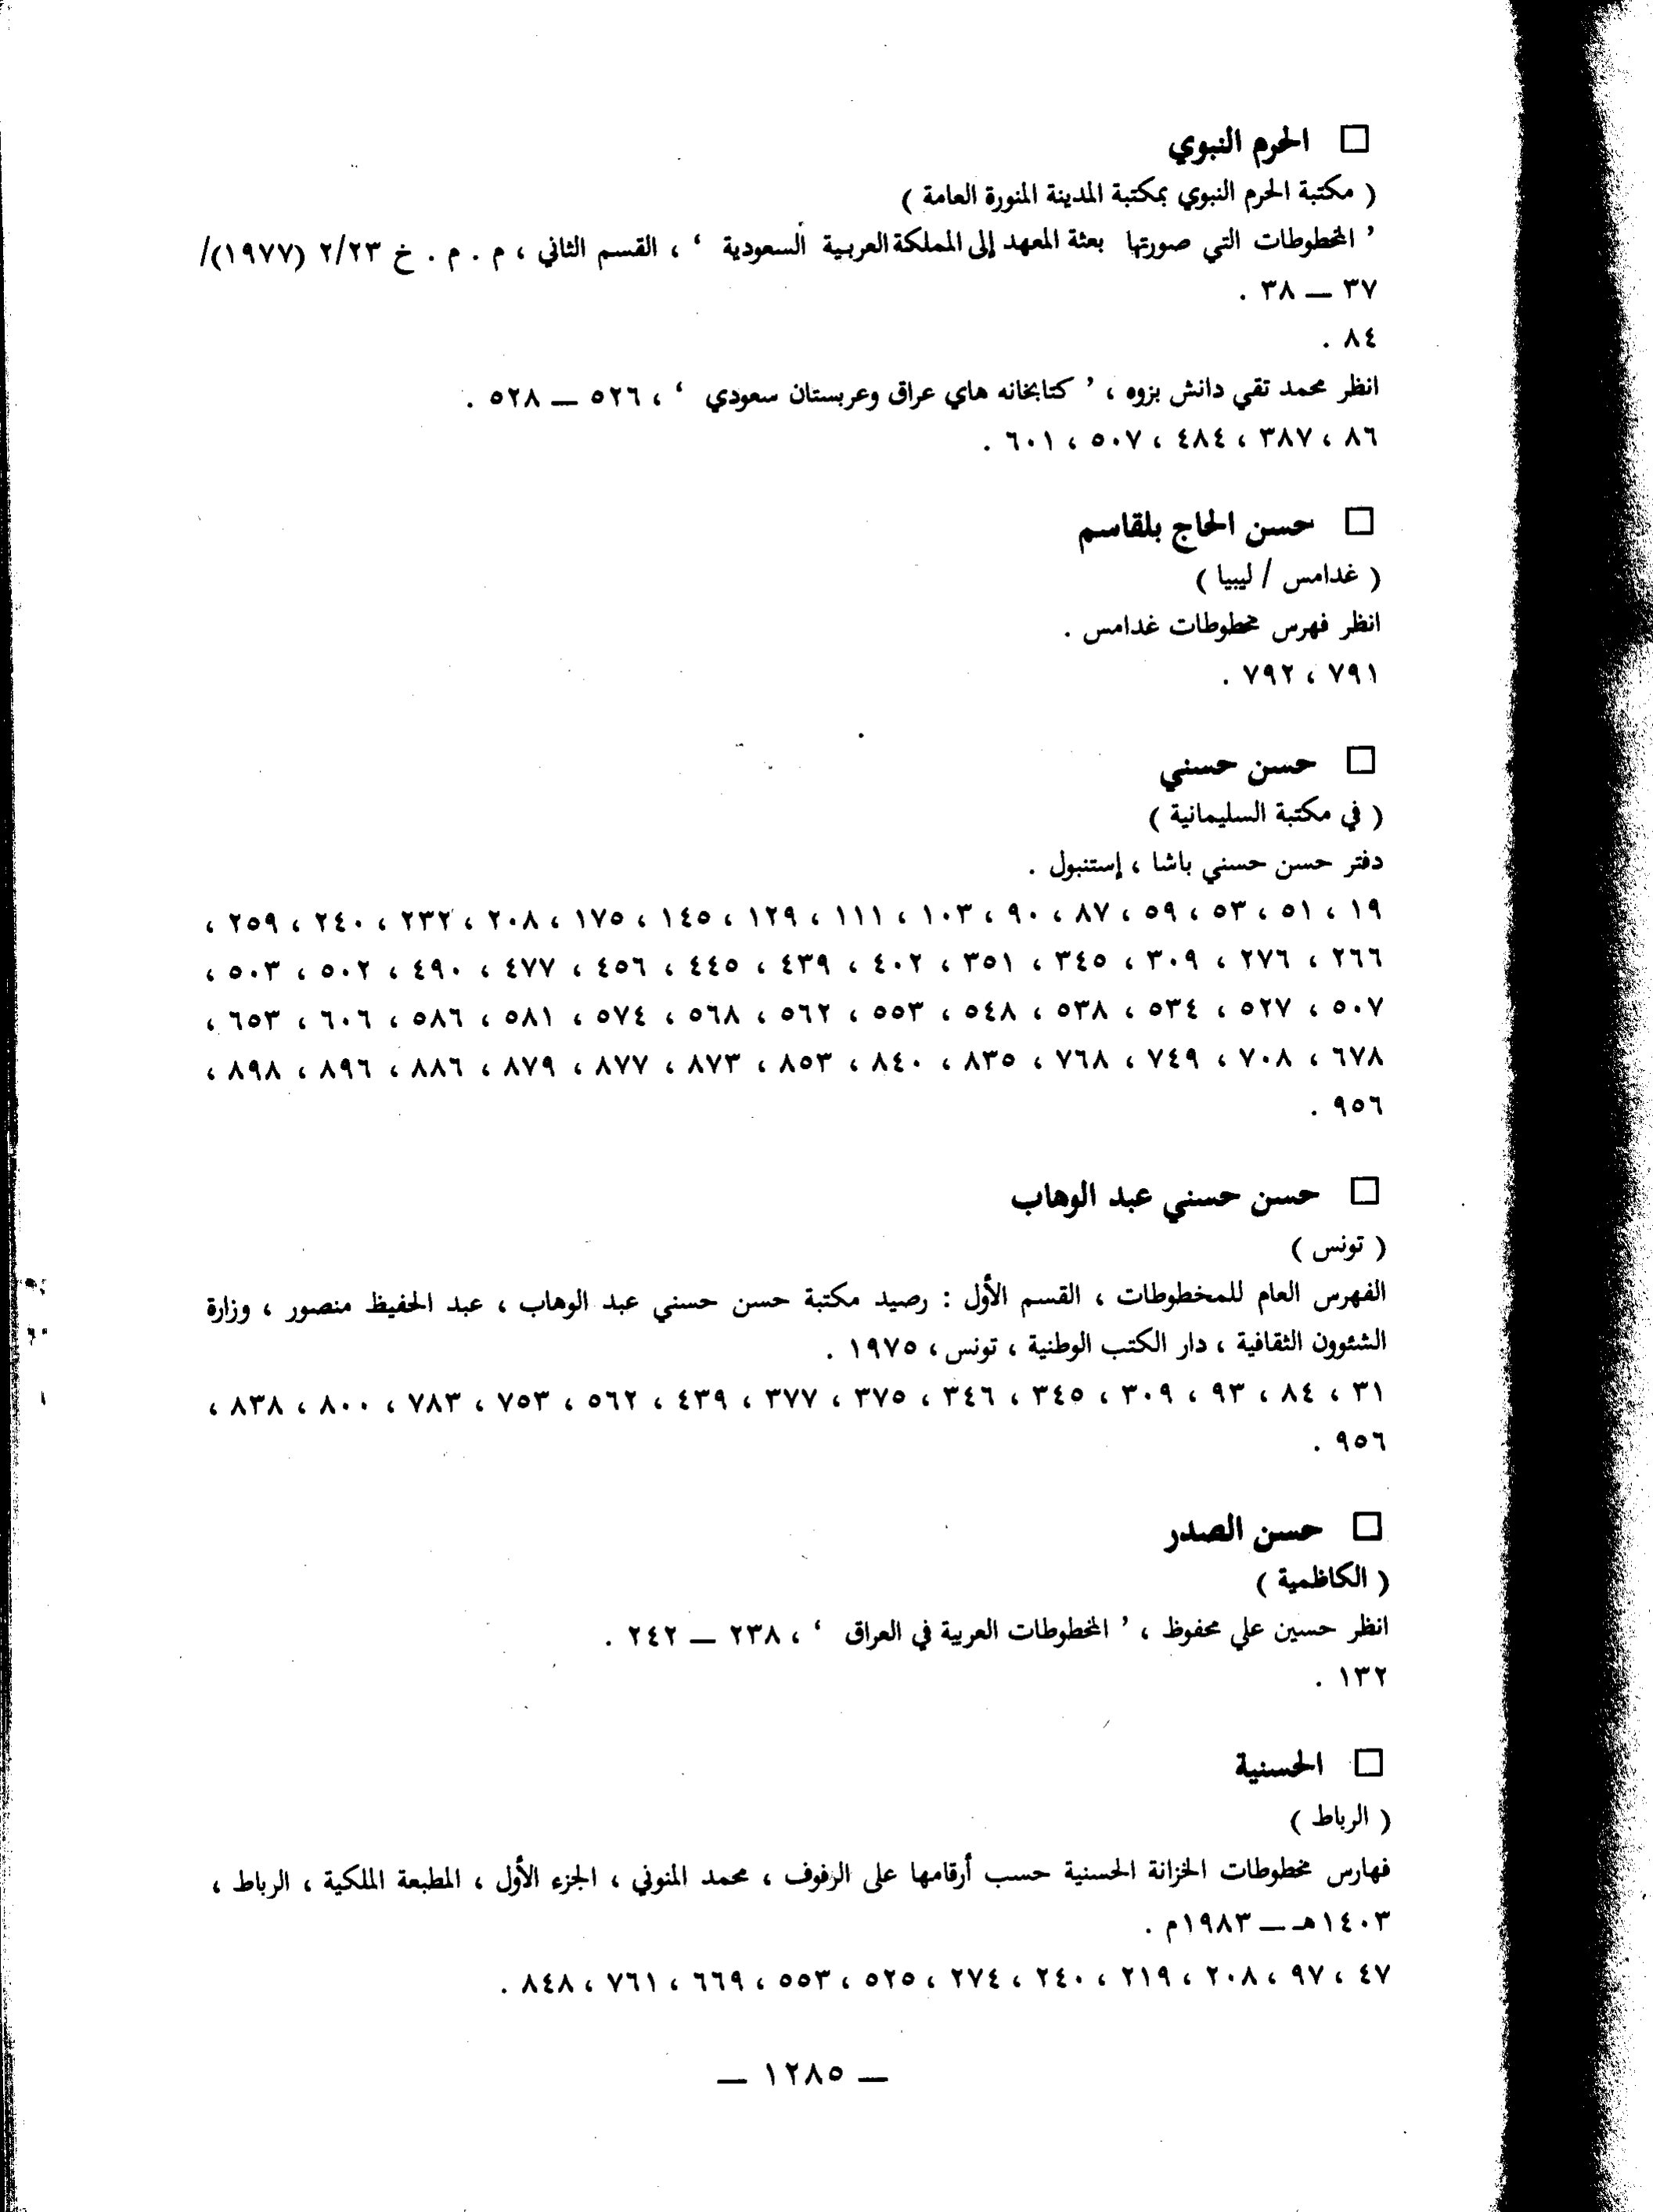 □ الحرم النبوي
( مكتبة الحرم النبوي بمكتبة المدينة المنورة العامة )
’ المخطوطات التي صورتها بعثة المعهد إلى المملكة العربية السعودية ‘ ، القسم الثاني ، م . م . خ ٢/٢٣ (١٩٧٧)/
٣٧ — ٣٨ .
٨٤ .
انظر محمد تقي دانش بزوه ، ’ كتابخانه هاي عراق وعربستان سعودي ‘ ، ٥٢٦ — ٥٢٨ .
٨٦ ، ٣٨٧ ، ٤٨٤ ، ٥٠٧ ، ٦٠١ .
□ حسن الحاج بلقاسم
( غدامس / ليبيا )
انظر فهرس مخطوطات غدامس .
٧٩١ ، ٧٩٢ .
□ حسن حسني
( في مكتبة السليمانية )
دفتر حسن حسني باشا ، إستنبول .
١٩ ، ٥١ ، ٥٣ ، ٥٩ ، ٨٧ ، ٩٠ ، ١٠٣ ، ١١١ ، ١٢٩ ، ١٤٥ ، ١٧٥ ، ٢٠٨ ، ٢٣٢ ، ٢٤٠ ، ٢٥٩ ،
٢٦٦ ، ٢٧٦ ، ٣٠٩ ، ٣٤٥ ، ٣٥١ ، ٤٠٢ ، ٤٣٩ ، ٤٤٥ ، ٤٥٦ ، ٤٧٧ ، ٤٩٠ ، ٥٠٢ ، ٥٠٣ ،
٥٠٧ ، ٥٢٧ ، ٥٣٤ ، ٥٣٨ ، ٥٤٨ ، ٥٥٣ ، ٥٦٢ ، ٥٦٨ ، ٥٧٤ ، ٥٨١ ، ٥٨٦ ، ٦٠٦ ، ٦٥٣ ،
٦٧٨ ، ٧٠٨ ، ٧٤٩ ، ٧٦٨ ، ٨٣٥ ، ٨٤٠ ، ٨٥٣ ، ٨٧٣ ، ٨٧٧ ، ٨٧٩ ، ٨٨٦ ، ٨٩٦ ، ٨٩٨ ،
٩٥٦ .
□ حسن حسني عبد الوهاب
( تونس )
الفهرس العام للمخطوطات ، القسم الأول : رصيد مكتبة حسن حسني عبد الوهاب ، عبد الحفيظ منصور ، وزارة
الشئوون الثقافية ، دار الكتب الوطنية ، تونس ، ١٩٧٥ .
٣١ ، ٨٤ ، ٩٣ ، ٣٠٩ ، ٣٤٥ ، ٣٤٦ ، ٣٧٥ ، ٣٧٧ ، ٤٣٩ ، ٥٦٢ ، ٧٥٣ ، ٧٨٣ ، ٨٠٠ ، ٨٣٨ ،
٩٥٦ .
□ حسن الصدر
( الكاظمية )
انظر حسين علي محفوظ ، ’ المخطوطات العربية في العراق ‘ ، ٢٣٨ — ٢٤٢ .
١٣٢ .
□ الحسنية
( الرباط )
فهارس مخطوطات الخزانة الحسنية حسب أرقامها على الرفوف ، محمد المنوني ، الجزء الأول ، المطبعة الملكية ، الرباط ،
١٤٠٣هـ — ١٩٨٣م .
٤٧ ، ٩٧ ، ٢٠٨ ، ٢١٩ ، ٢٤٠ ، ٢٧٤ ، ٥٢٥ ، ٥٥٣ ، ٦٦٩ ، ٧٦١ ، ٨٤٨ .
— ١٢٨٥ —